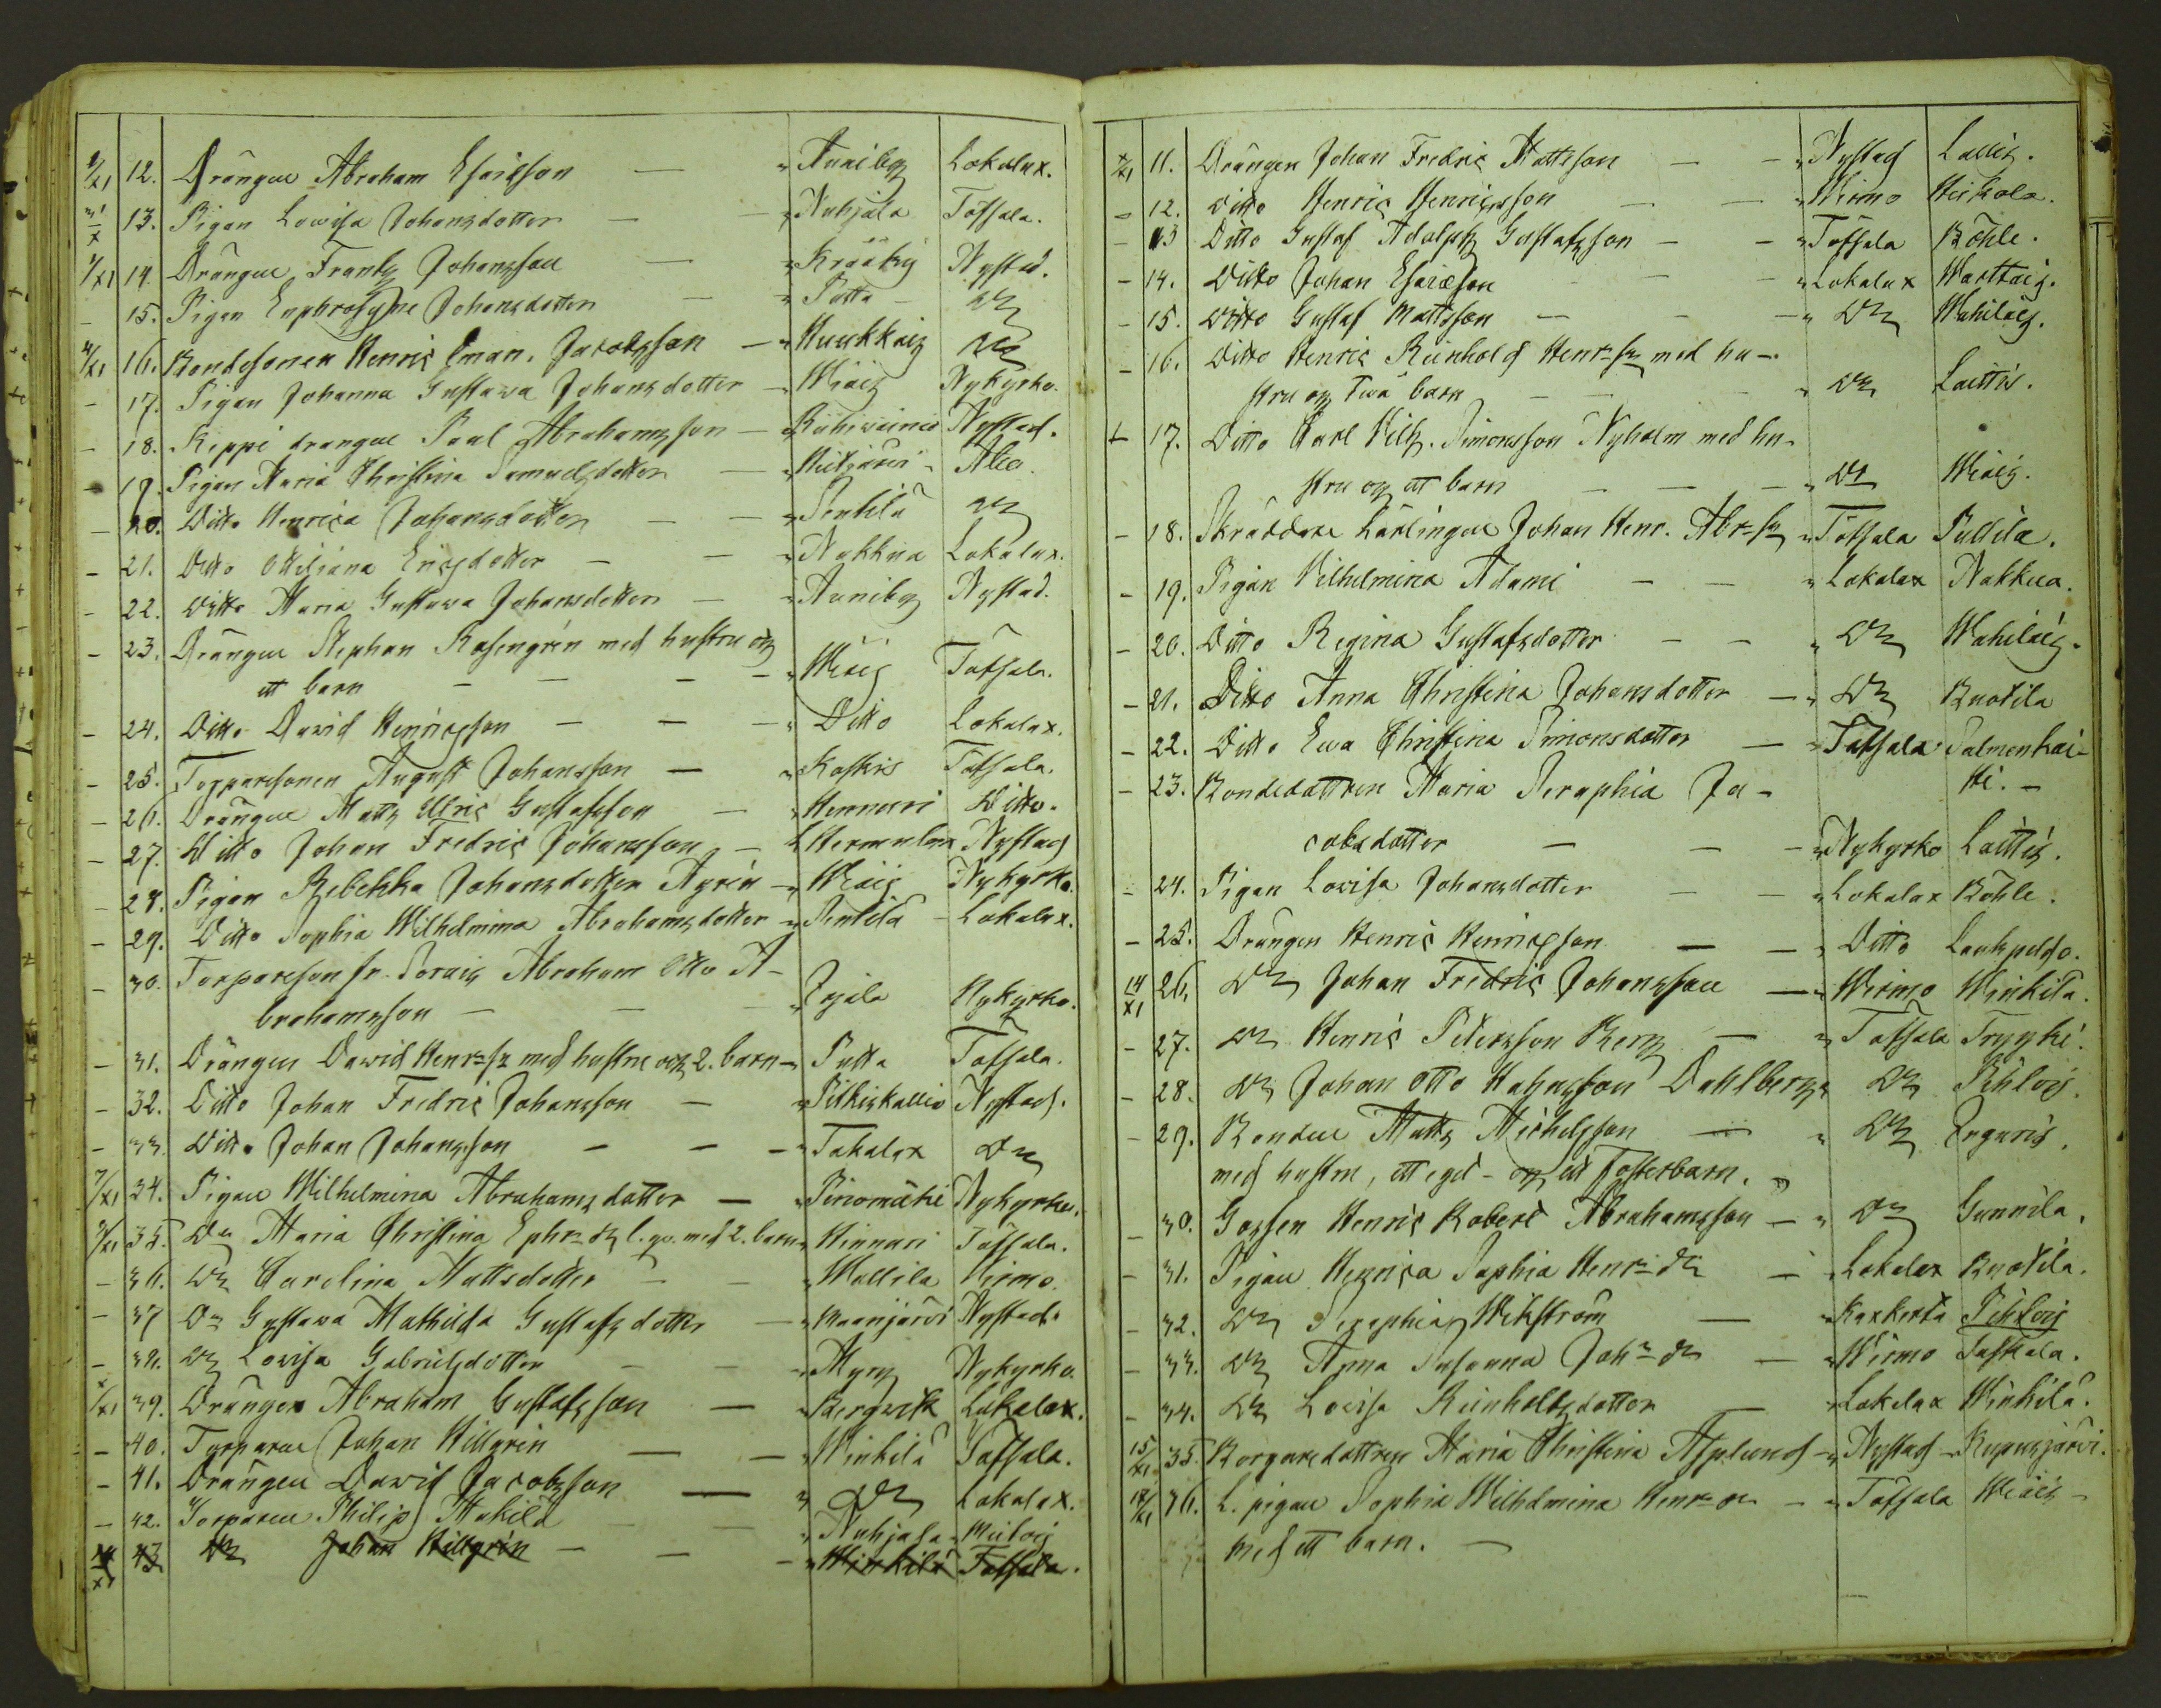 1/XI 12. Drängen Abraham Esaiesson — " Anniby Lokalax.
31/X 13. Pigan Lowisa Johansdotter — " Nuhjala Töfsala.
1/XI 14. Drängen Frantz Johansson — " Krääky Nystad.
— 15. Pigan Euphrosyne Johansdotter — " Putta —
4/XI 16. Bondesonen Henric Eman. Jacobsson — "
— 17. Pigan Johanna Gustawa Johansdotter — " Wiais Nykyrko.
— 18. drängen Paul Abrahamsson — " Nystad.
— 19. Pigan Maria Christina Samuelsdotter — " Åbo.
— 20. Ditto Henrica Johansdotter — — " Sentilä
— 21. Ditto Ericsdotter — — " Nakkua Lokalax.
— 22. Ditto Maria Gustawa Johansdotter — " Anniby Nystad.
— 23. Drängen Stephan Rosengrén med hustru och
ett barn — — — — " Wiais Töfsala.
— 24. Ditto David Henricsson — — — " Ditto Lokalax.
— 25. Torparesonen August Johansson — " Koskis Töfsala.
— 26. Drängen Matts Ulric Gustafsson — " Hennari Ditto.
— 27. Ditto Johan Fredric Johansson — Nystad
— 28. Pigan Rebekka Johansdotter Agrén — " Wiais Nykyrko.
— 29. Ditto Sophia Wilhelmina Abrahamsdotter — " Sentilä — Lokalax.
— 30. Abraham Otto A-
brahamsson — — — " Nykyrko.
— 31. Drängen Dawid Henr:s:n med hustru och 2. barn — Putta Töfsala.
— 32. Ditto Johan Fredric Johansson — " Pitkiskallio Nystad.
— 33. Ditto Johan Johansson — — — " D:o
7/XI 34. Pigan Wilhelmina Abrahamsdotter — " Piriomäki Nykyrko.
XI 35. D:o Maria Christina Ephr: d:r l. qv. med 2. barn " Hinnari Töfsala.
— 36. D:o Carolina Mattsdotter — — " Wallila Wirmo.
— 37 D:o Gustawa Mathilda Gustafsdotter — " Maanjärvi Nystad.
— 38. D:o Lovisa Gabrielsdotter — — " Myry Nykyrko.
/XI 39. Drängen Abraham Gustafsson — " Bergwik Lokalax.
— 40. Torparen Johan Hillgrén — — " Winkilä Töfsala.
— 41. Drängen Dawid Jacobsson — " D:o Lokalax.
— 42. Torparen Philip — — " Nuhjala
XI 43 D:o Johan Hillgrén — — — " Winkilä Töfsala.
/XI 11. Drängen Johan Fredric Mattsson — — " Nystad Laitis.
— 12. Ditto Henric Henricsson — — " Wirmo Heikola.
— 13 Ditto Gustaf Adolph Gustafsson — — " Töfsala Böhle.
— 14. Ditto Johan Esaiæson — — " Lokalax Warttais.
— 15. Ditto Gustaf Mattsson — — — " D:o Wahilais.
— 16. Ditto Henric Reinhold Henr:s:n med hu-
stru och twå barn — — — " D:o Laittis.
17. Ditto Carl Wilh. Simonsson Nyholm med hu-
stru och ett barn — — — " D:o Wiais.
— 18. Skräddare Lärlingen Johan Henr. Abr:s:n " Töfsala Pullila.
— 19. Pigan Wilhelmina Adami — — " Lokalax Nakkua.
— 20. Ditto Regina Gustafsdotter — — " D:o Wahilais.
— 21. Ditto Anna Christina Johansdotter — " D:o Knotila
— 22. Ditto Ewa Christina Simonsdotter — " Töfsala Salmenhai-
tti. —
— 23. Bondedottren Maria Seraphia Ja-
cobsdotter — — — " Nykyrko Laittis.
— 24. Pigan Lovisa Johansdotter — — " Lokalax Böhle.
— 25. Drängen Henric Henricsson — — " Ditto Lauhpeldo.
14/XI 26. D:o Johan Fredric Johansson — " Wirmo Winkilä.
— 27. D:o Henric Petersson Berg — " Töfsala
— 28. D:o Johan Otto Dahlberg " D:o Pihlois.
— 29. Bonden Matts Michelsson — " D:o
med hustru, ett eget- och ett Fosterbarn. "
— 30. Gossen Henric Robert Abrahamsson — " D:o Gunnila.
— 31. Pigan Henrica Sophia Henr: d:r — " Lokalax Knotila.
— 32. D:o Seraphia Wikström — " Karkerta Pihlois
— 33. D:o Anna Susanna Joh: d:r — " Wirmo
— 34. D:o Lovisa Reinholdsdotter — " Lokalax Winkilä.
15/XI 35. Borgaredottren Maria Christina Asplund — " Nystad —
17/XI 36. L. pigan Sophia Wilhelmina Henr: d:r — " Töfsala Wiais —
med ett barn. —